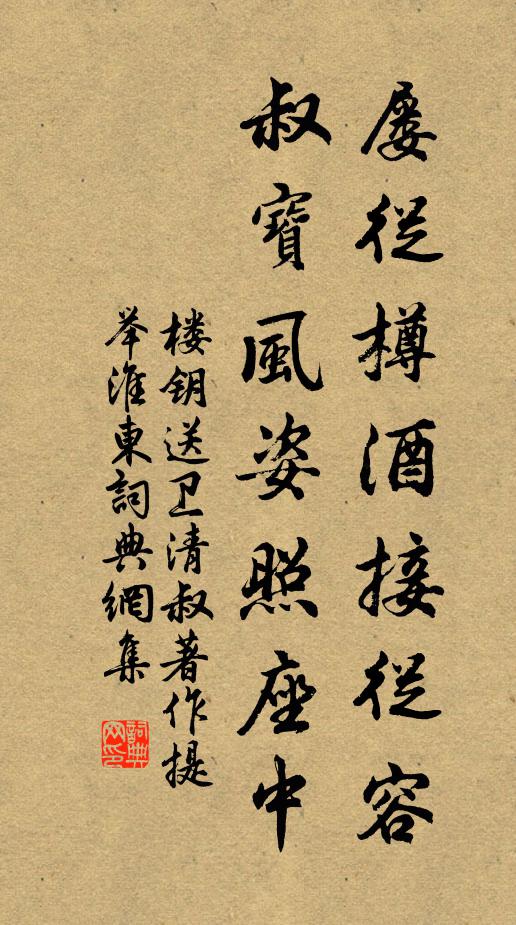 屡從樽酒接從容
叔寶風姿照座中
楼钥送卫清叔著作提
举淮東詞典網集
詞典网印